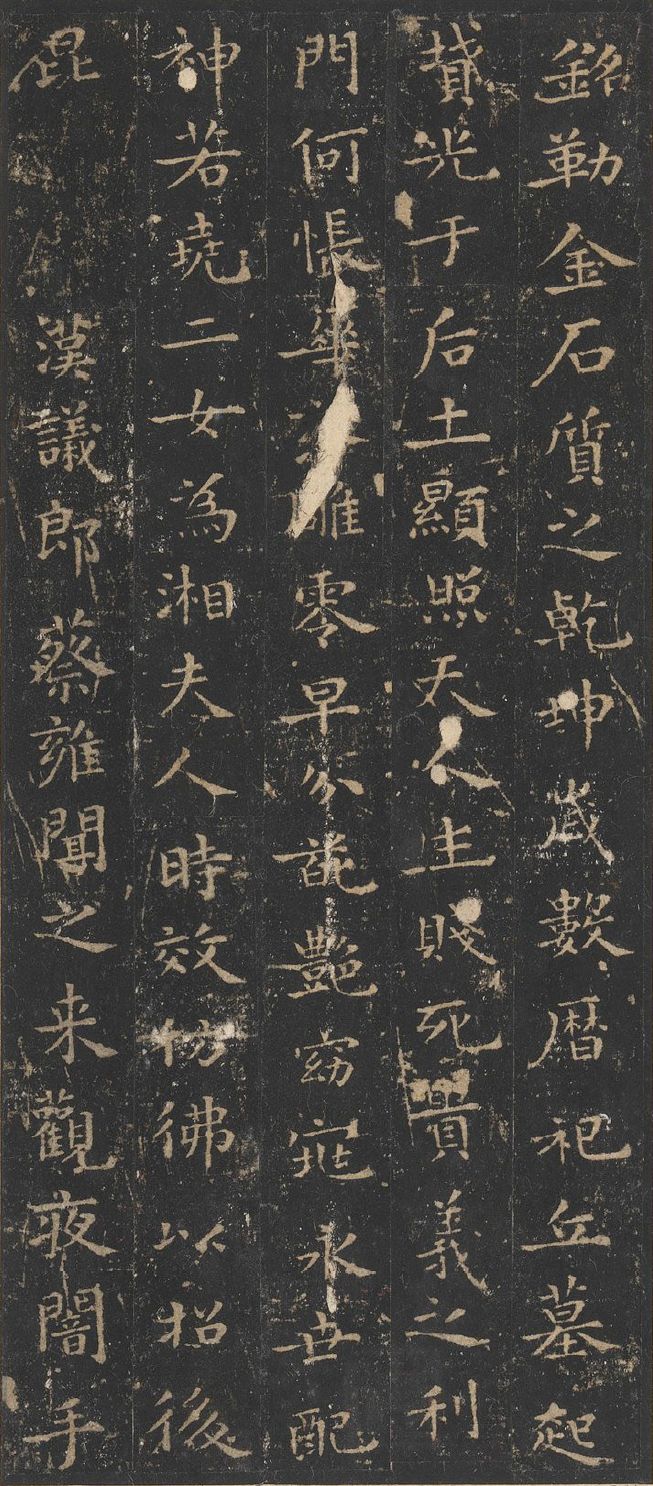 銘勒金石質之乾坤歳數暦祀丘墓起
墳光于后土顯照天人生賤死貴義之利
門何悵華落雕零早分葩艷窈窕永世配
神若堯二女為湘夫人時效仿彿以招後
昆漢議郎蔡雍聞之来觀夜闇手